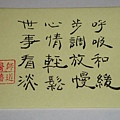 呼吸和緩
步調放慢
心情輕鬆
世事看淡